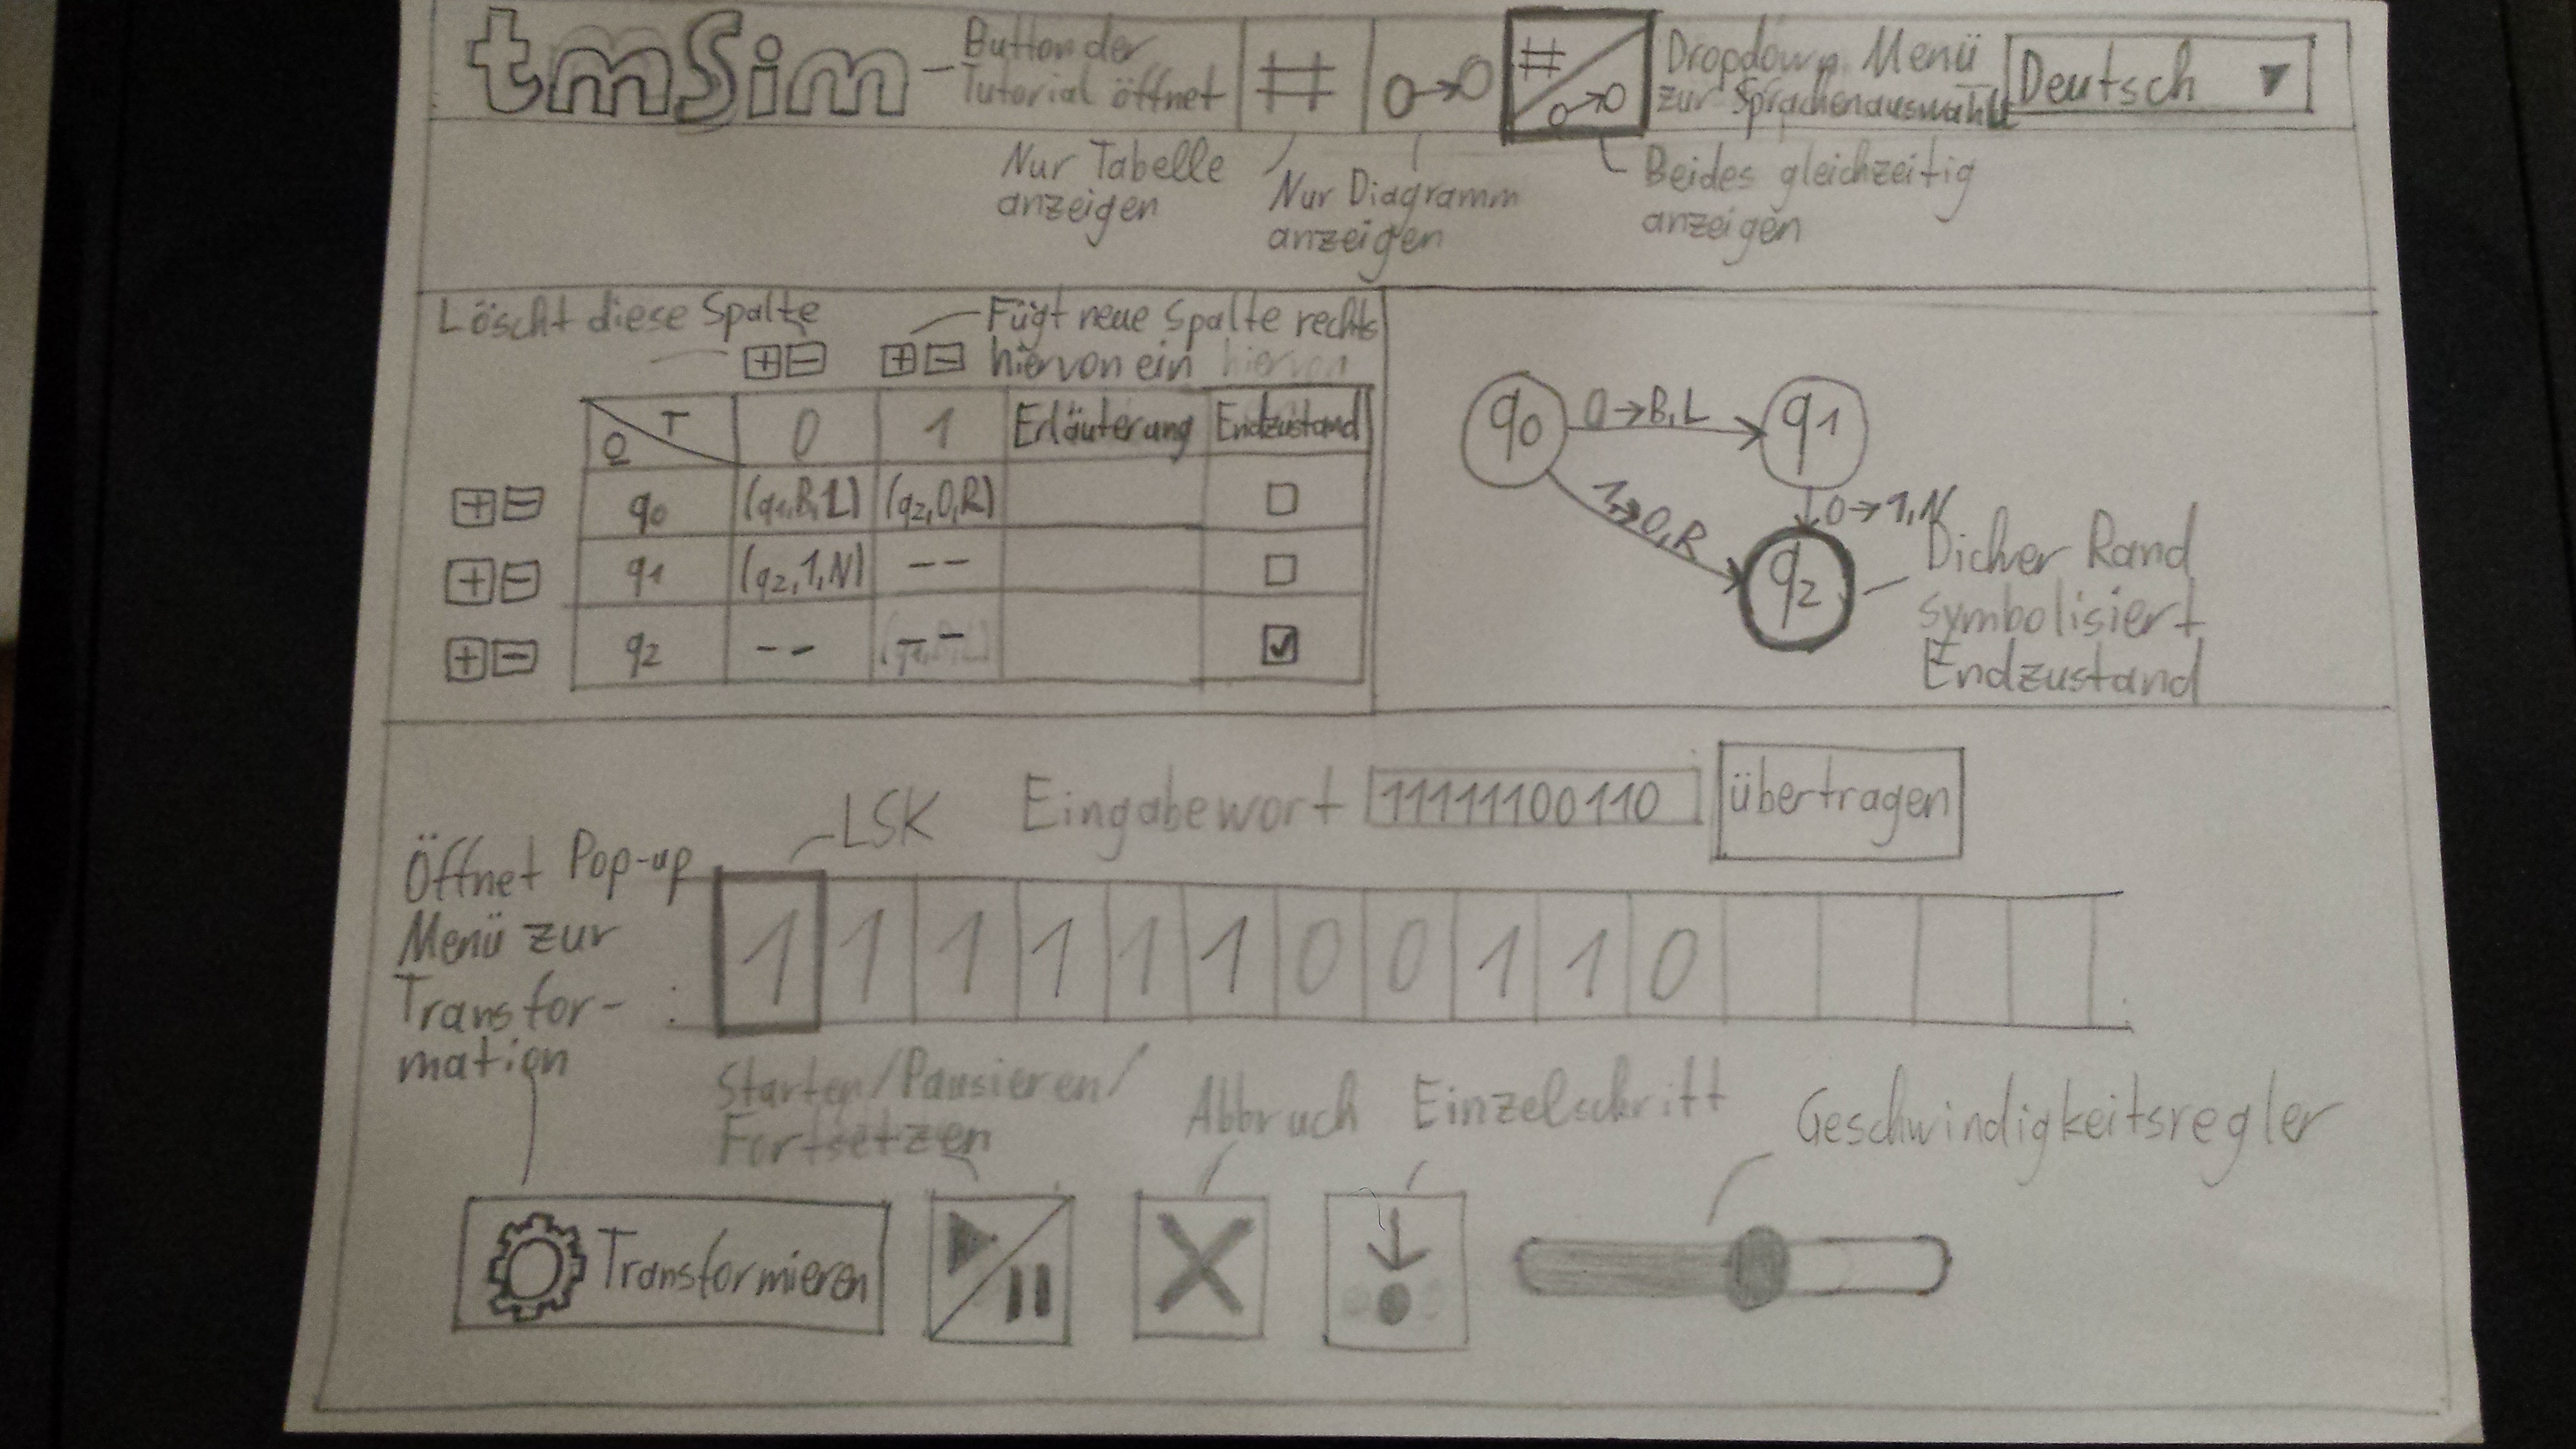 tmSim
Button der
Tutorial öffnet
#
#
Dropdown Menü
zur Sprachenauswahl
Deutsch
Nur Tabelle
anzeigen
Nur Diagramm
anzeigen
Beides gleichzeitig
anzeigen
Löscht diese Spalte
Fügt neue Spalte rechts
hiervon ein hiervon
+ - + -
Q T 0 1 Erläuterung Endzustand
+ - q0 (q1,B,L) (q2,0,R)
+ - q1 (q2,1,N) --
+ - q2 -- --
q0 0→B,L q1
1→0,R
0→1,N
q2
Dicker Rand
symbolisiert
Endzustand
LSK
Eingabewort 11111100110 übertragen
Öffnet Pop-up
Menü zur
Transfor-
mation
1 1 1 1 1 1 0 0 1 1 0
Starten/Pausieren/
Fortsetzen
Abbruch
Einzelschritt
Geschwindigkeitsregler
Transformieren